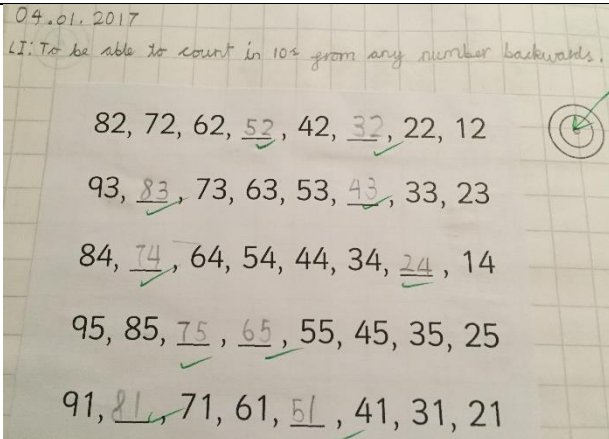 04.01.2017
LI: To be able to count in 10s from any number backwards.
82, 72, 62, 52, 42, 32, 22, 12
93, 83, 73, 63, 53, 43, 33, 23
84, 74, 64, 54, 44, 34, 24, 14
95, 85, 75, 65, 55, 45, 35, 25
91, 81, 71, 61, 51, 41, 31, 21